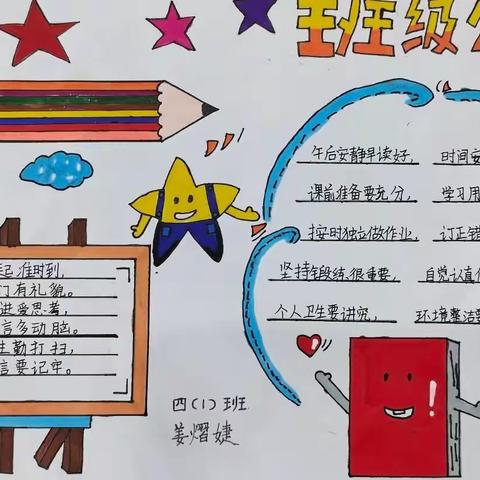 班级公
午后安静早读好， 时间安
课前准备要充分， 学习用
按时独立做作业， 订正错
坚持锻练很重要， 自觉认真
个人卫生要讲究， 环境整洁要
起准时到，
门有礼貌。
进爱思考，
言多动脑。
生勤打扫，
言要记牢。
四(1)班
姜熠婕